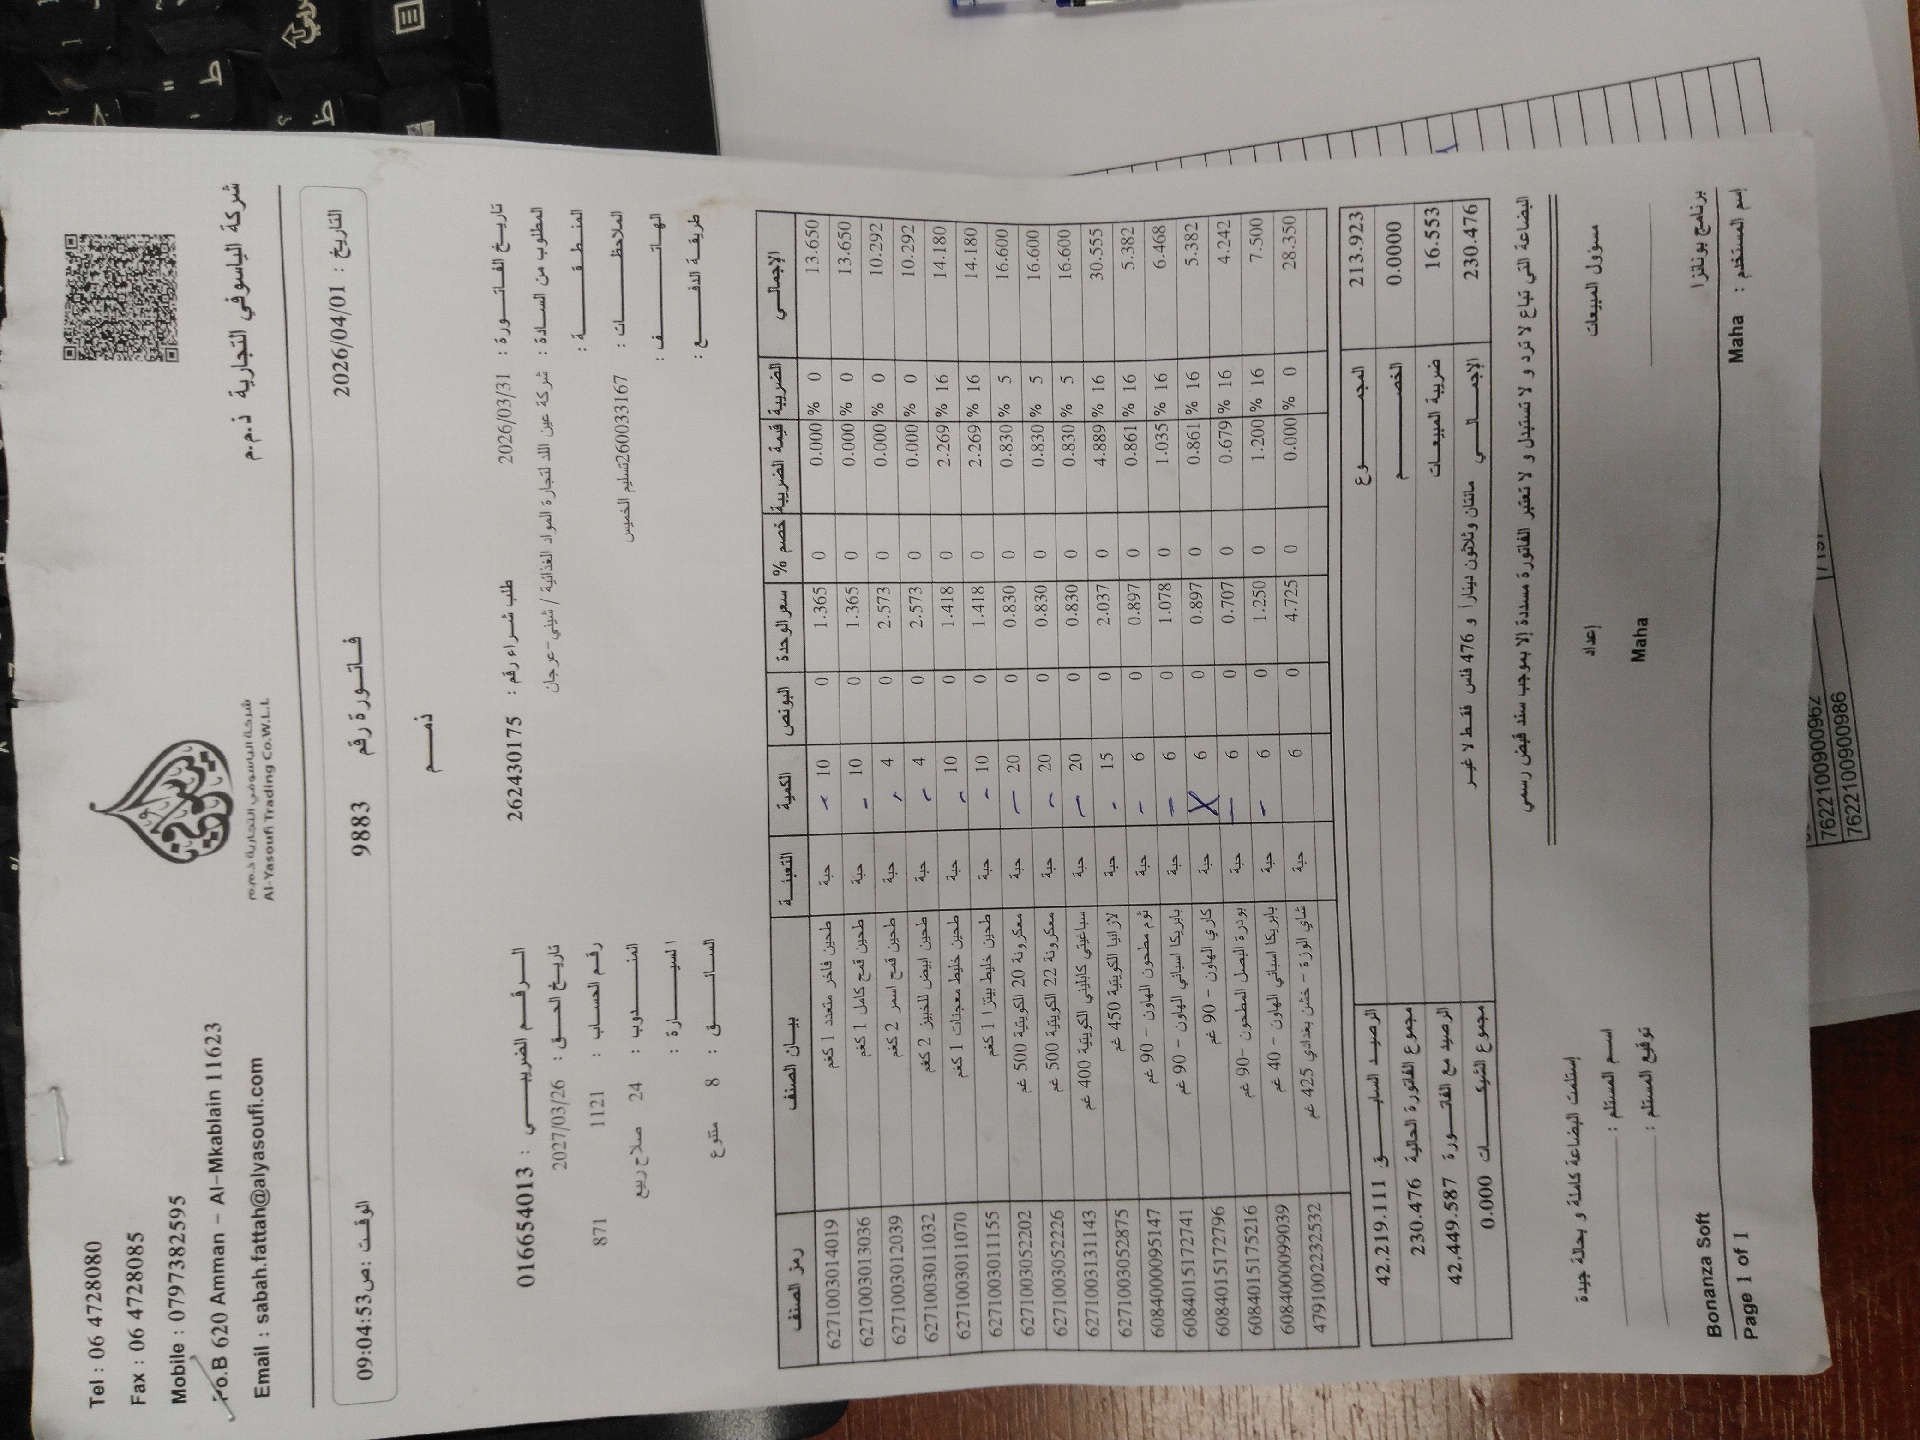 Tel : 06 4728080
Fax : 06 4728085
Mobile : 0797382595
Po.B 620 Amman - Al-Mkablain 11623
Email : sabah.fattah@alyasoufi.com
شركة الياسوفي التجارية ذ.م.م
Al-Yasoufi Trading Co.W.L.L
شركة الياسوفي التجارية ذ.م.م
التاريخ : 2026/04/01 فاتورة رقم 9883 الوقت : 09:04:53ص
ذمم
تاريخ الفاتورة : 2026/03/31 طلب شراء رقم : 262430175 الرقم الضريبي : 016654013
المطلوب من السادة : شركة عين اللد لتجارة المواد الغذائية / شيني-عرجان تاريخ الحق : 2027/03/26
المنطقة : رقم الحساب : 1121 871
الملاحظات : 260033167تسليم الخميس المندوب : 24 صلاح ربيع
الهاتف : السيارة :
طريقة الدفع : السائق : 8 متنوع
رمز الصنف بيان الصنف التعبئة الكمية البونص سعر الوحدة خصم % قيمة الضريبة الضريبة الإجمالي
6271003014019 طحين فاخر متعدد 1 كغم حبة 10 0 1.365 0 0.000 % 0 13.650
6271003013036 طحين قمح كامل 1 كغم حبة 10 0 1.365 0 0.000 % 0 13.650
6271003012039 طحين قمح اسمر 2 كغم حبة 4 0 2.573 0 0.000 % 0 10.292
6271003011032 طحين ابيض للخبيز 2 كغم حبة 4 0 2.573 0 0.000 % 0 10.292
6271003011070 طحين خليط معجنات 1 كغم حبة 10 0 1.418 0 2.269 % 16 14.180
6271003011155 طحين خليط بيتزا 1 كغم حبة 10 0 1.418 0 2.269 % 16 14.180
6271003052202 معكرونة 20 الكويتية 500 غم حبة 20 0 0.830 0 0.830 % 5 16.600
6271003052226 معكرونة 22 الكويتية 500 غم حبة 20 0 0.830 0 0.830 % 5 16.600
6271003131143 سباغيتي كابليني الكويتية 400 غم حبة 20 0 0.830 0 0.830 % 5 16.600
6271003052875 لازانيا الكويتية 450 غم حبة 15 0 2.037 0 4.889 % 16 30.555
6084000095147 ثوم مطحون الهاون - 90 غم حبة 6 0 0.897 0 0.861 % 16 5.382
6084015172741 بابريكا اسباني الهاون - 90 غم حبة 6 0 1.078 0 1.035 % 16 6.468
6084015172796 كاري الهاون - 90 غم حبة X 6 0 0.897 0 0.861 % 16 5.382
6084015175216 بودرة البصل المطحون -90 غم حبة 6 0 0.707 0 0.679 % 16 4.242
6084000099039 بابريكا اسباني الهاون - 40 غم حبة 6 0 1.250 0 1.200 % 16 7.500
4791002232532 شاي الوزة - خشن بغدادي 425 غم حبة 6 0 4.725 0 0.000 % 0 28.350
المجموع 213.923 الرصيد السابق 42,219.111
الخصم 0.0000 مجموع الفاتورة الحالية 230.476
ضريبة المبيعات 16.553 الرصيد مع الفاتورة 42,449.587
الإجمالي 230.476 مائتان وثلاثون دينارا و 476 فلس فقط لا غير مجموع الشيكات 0.000
البضاعة التي تباع لا ترد و لا تستبدل و لا تعتبر الفاتورة مسددة إلا بموجب سند قبض رسمي
إستلمت البضاعة كاملة و بحالة جيدة
مسؤول المبيعات إعداد اسم المستلم :
Maha توقيع المستلم :
برنامج بونانزا Bonanza Soft
إسم المستخدم : Maha Page 1 of 1
7622100900962
7622100900986